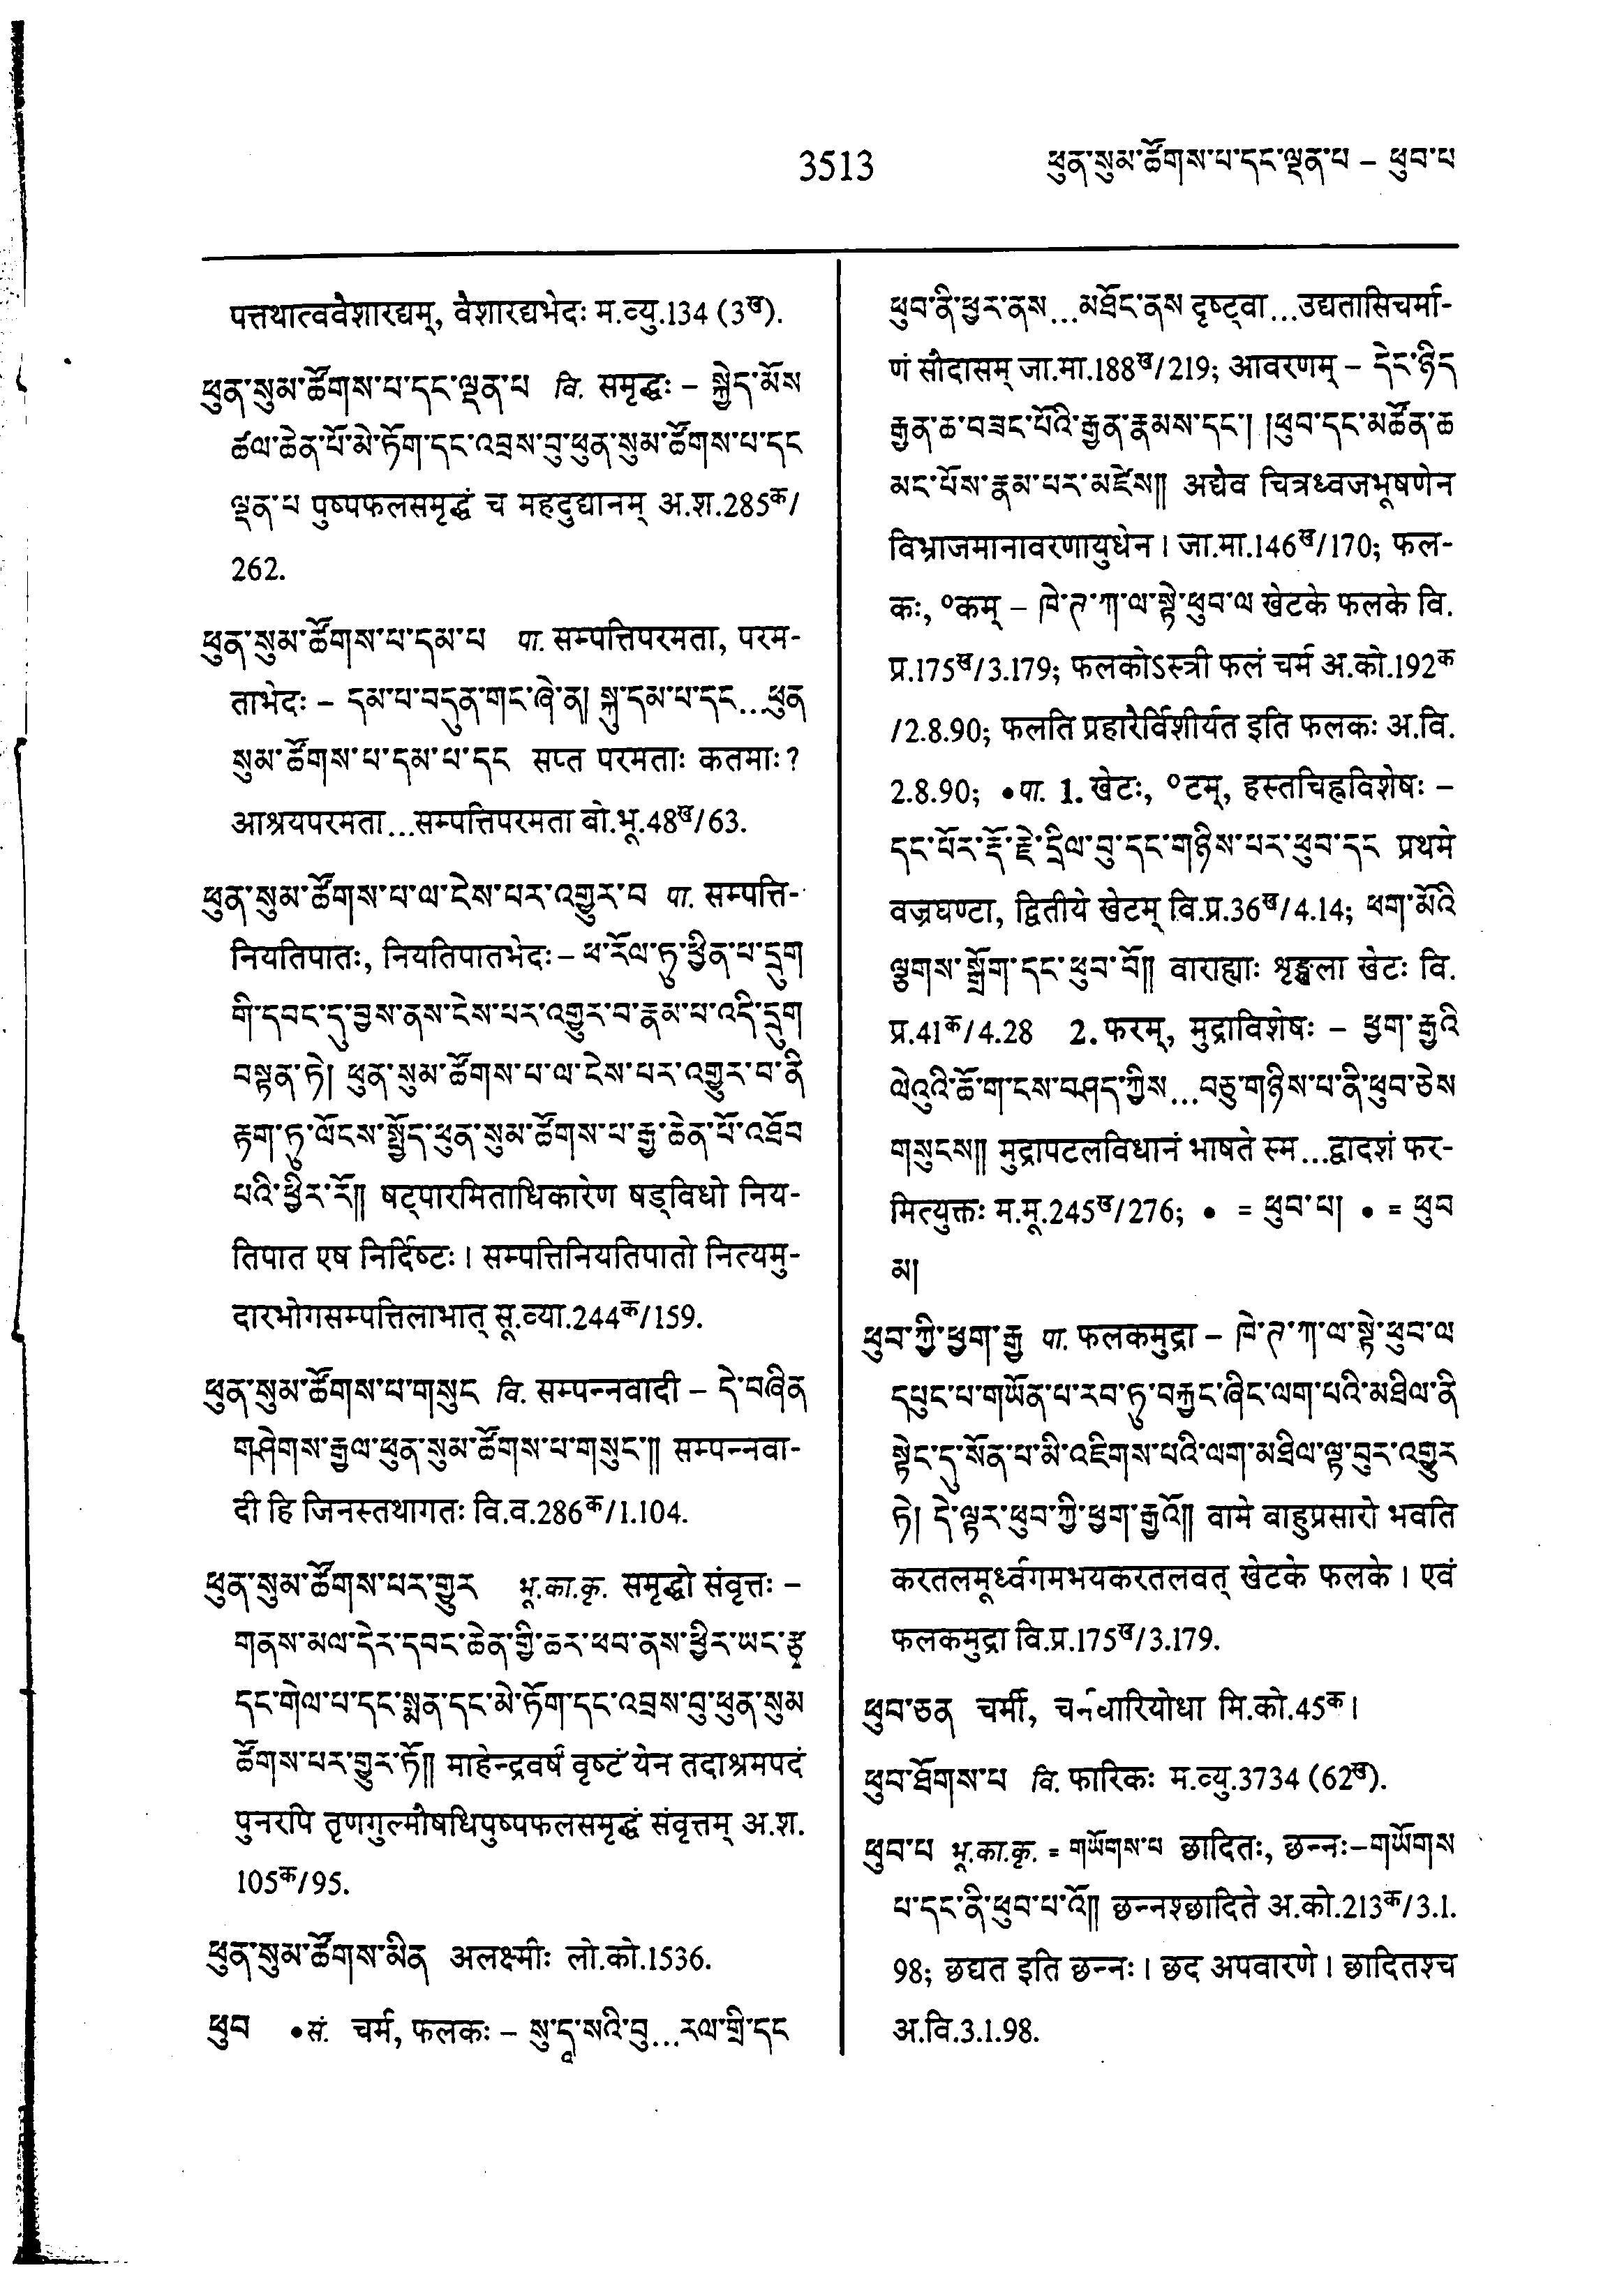 3513 ཕུན་སུམ་ཚོགས་པ་དང་ལྡན་པ – ཕུབ་པ
पत्तथात्ववैशारद्यम्, वैशारद्यभेदः म.व्यु.134 (3ख).
ཕུན་སུམ་ཚོགས་པ་དང་ལྡན་པ वि. समृद्धः – སྐྱེད་མོས
ཚལ་ཆེན་པོ་མེ་ཏོག་དང་འབྲས་བུ་ཕུན་སུམ་ཚོགས་པ་དང
ལྡན་པ पुष्पफलसमृद्धं च महदुद्यानम् अ.श.285क/
262.
ཕུན་སུམ་ཚོགས་པ་དམ་པ पा. सम्पत्तिपरमता, परम-
ताभेदः – དམ་པ་བདུན་གང་ཞེ་ན། སྐུ་དམ་པ་དང...ཕུན
སུམ་ཚོགས་པ་དམ་པ་དང सप्त परमताः कतमाः?
आश्रयपरमता...सम्पत्तिपरमता बो.भू.48ख/63.
ཕུན་སུམ་ཚོགས་པ་ལ་ངེས་པར་འགྱུར་བ पा. सम्पत्ति-
नियतिपातः, नियतिपातभेदः – ཕ་རོལ་ཏུ་ཕྱིན་པ་དྲུག
གི་དབང་དུ་བྱས་ནས་ངེས་པར་འགྱུར་བ་རྣམ་པ་འདི་དྲུག
བསྟན་ཏེ། ཕུན་སུམ་ཚོགས་པ་ལ་ངེས་པར་འགྱུར་བ་ནི
རྟག་ཏུ་ལོངས་སྤྱོད་ཕུན་སུམ་ཚོགས་པ་རྒྱ་ཆེན་པོ་འཐོབ
པའི་ཕྱིར་རོ།། षट्पारमिताधिकारेण षड्विधो निय-
तिपात एष निर्दिष्टः। सम्पत्तिनियतिपातो नित्यमु-
दारभोगसम्पत्तिलाभात् सू.व्या.244क/159.
ཕུན་སུམ་ཚོགས་པ་གསུང वि. सम्पन्नवादी – དེ་བཞིན
གཤེགས་རྒྱལ་ཕུན་སུམ་ཚོགས་པ་གསུང་།། सम्पन्नवा-
दी हि जिनस्तथागतः वि.व.286क/1.104.
ཕུན་སུམ་ཚོགས་པར་གྱུར भू.का.कृ. समृद्धो संवृत्तः –
གནས་མལ་དེར་དབང་ཆེན་གྱི་ཆར་ཕབ་ནས་ཕྱིར་ཡང་རྩྭ
དང་གེལ་པ་དང་སྨན་དང་མེ་ཏོག་དང་འབྲས་བུ་ཕུན་སུམ
ཚོགས་པར་གྱུར་ཏོ།། माहेन्द्रवर्षं वृष्टं येन तदाश्रमपदं
पुनरपि तृणगुल्मौषधिपुष्पफलसमृद्धं संवृत्तम् अ.श.
105क/95.
ཕུན་སུམ་ཚོགས་མིན अलक्ष्मीः लो.को.1536.
ཕུབ •सं. चर्म, फलकः – སུ་དཱ་སའི་བུ...རལ་གྲི་དང
ཕུབ་ནི་ཕྱར་ནས...མཐོང་ནས दृष्ट्वा...उद्यतासिचर्मा-
णं सौदासम् जा.मा.188ख/219; आवरणम् – དེང་ཉིད
རྒྱན་ཆ་བཟང་པོའི་རྒྱན་རྣམས་དང་། །ཕུབ་དང་མཚོན་ཆ
མང་པོས་རྣམ་པར་མཛེས།། अद्यैव चित्रध्वजभूषणेन
विभ्राजमानावरणायुधेन। जा.मा.146ख/170; फल-
कः, ०कम् – ཁེ་ཊ་ཀ་ལ་སྟེ་ཕུབ་ལ खेटके फलके वि.
प्र.175ख/3.179; फलकोऽस्त्री फलं चर्म अ.को.192क
/2.8.90; फलति प्रहारैर्विशीर्यत इति फलकः अ.वि.
2.8.90; •पा. 1. खेटः, ०टम्, हस्तचिह्नविशेषः –
དང་པོར་རྡོ་རྗེ་དྲིལ་བུ་དང་གཉིས་པར་ཕུབ་དང प्रथमे
वज्रघण्टा, द्वितीये खेटम् वि.प्र.36ख/4.14; ཕག་མོའི
ལྕགས་སྒྲོག་དང་ཕུབ་བོ།། वाराह्याः शृङ्खला खेटः वि.
प्र.41क/4.28 2. फरम्, मुद्राविशेषः – ཕྱག་རྒྱའི
ལེའུའི་ཆོ་ག་ངས་བཤད་ཀྱིས...བཅུ་གཉིས་པ་ནི་ཕུབ་ཅེས
གསུངས།། मुद्रापटलविधानं भाषते स्म...द्वादशं फर-
मित्युक्तः म.मू.245ख/276; • = ཕུབ་པ། • = ཕུབ
མ།
ཕུབ་ཀྱི་ཕྱག་རྒྱ पा. फलकमुद्रा – ཁེ་ཊ་ཀ་ལ་སྟེ་ཕུབ་ལ
དཔུང་པ་གཡོན་པ་རབ་ཏུ་བརྐྱང་ཞིང་ལག་པའི་མཐིལ་ནི
སྟེང་དུ་སོན་པ་མི་འཇིགས་པའི་ལག་མཐིལ་ལྟ་བུར་འགྱུར
ཏེ། དེ་ལྟར་ཕུབ་ཀྱི་ཕྱག་རྒྱའོ།། वामे बाहुप्रसारो भवति
करतलमूर्ध्वगमभयकरतलवत् खेटके फलके। एवं
फलकमुद्रा वि.प्र.175ख/3.179.
ཕུབ་ཅན चर्मी, चर्मधारियोधा मि.को.45क।
ཕུབ་ཐོགས་པ वि. फारिकः म.व्यु.3734 (62ख).
ཕུབ་པ भू.का.कृ. = གཡོགས་པ छादितः, छन्नः – གཡོགས
པ་དང་ནི་ཕུབ་པ་འོ།། छन्नश्छादिते अ.को.213क/3.1.
98; छद्यत इति छन्नः। छद अपवारणे। छादितश्च
अ.वि.3.1.98.